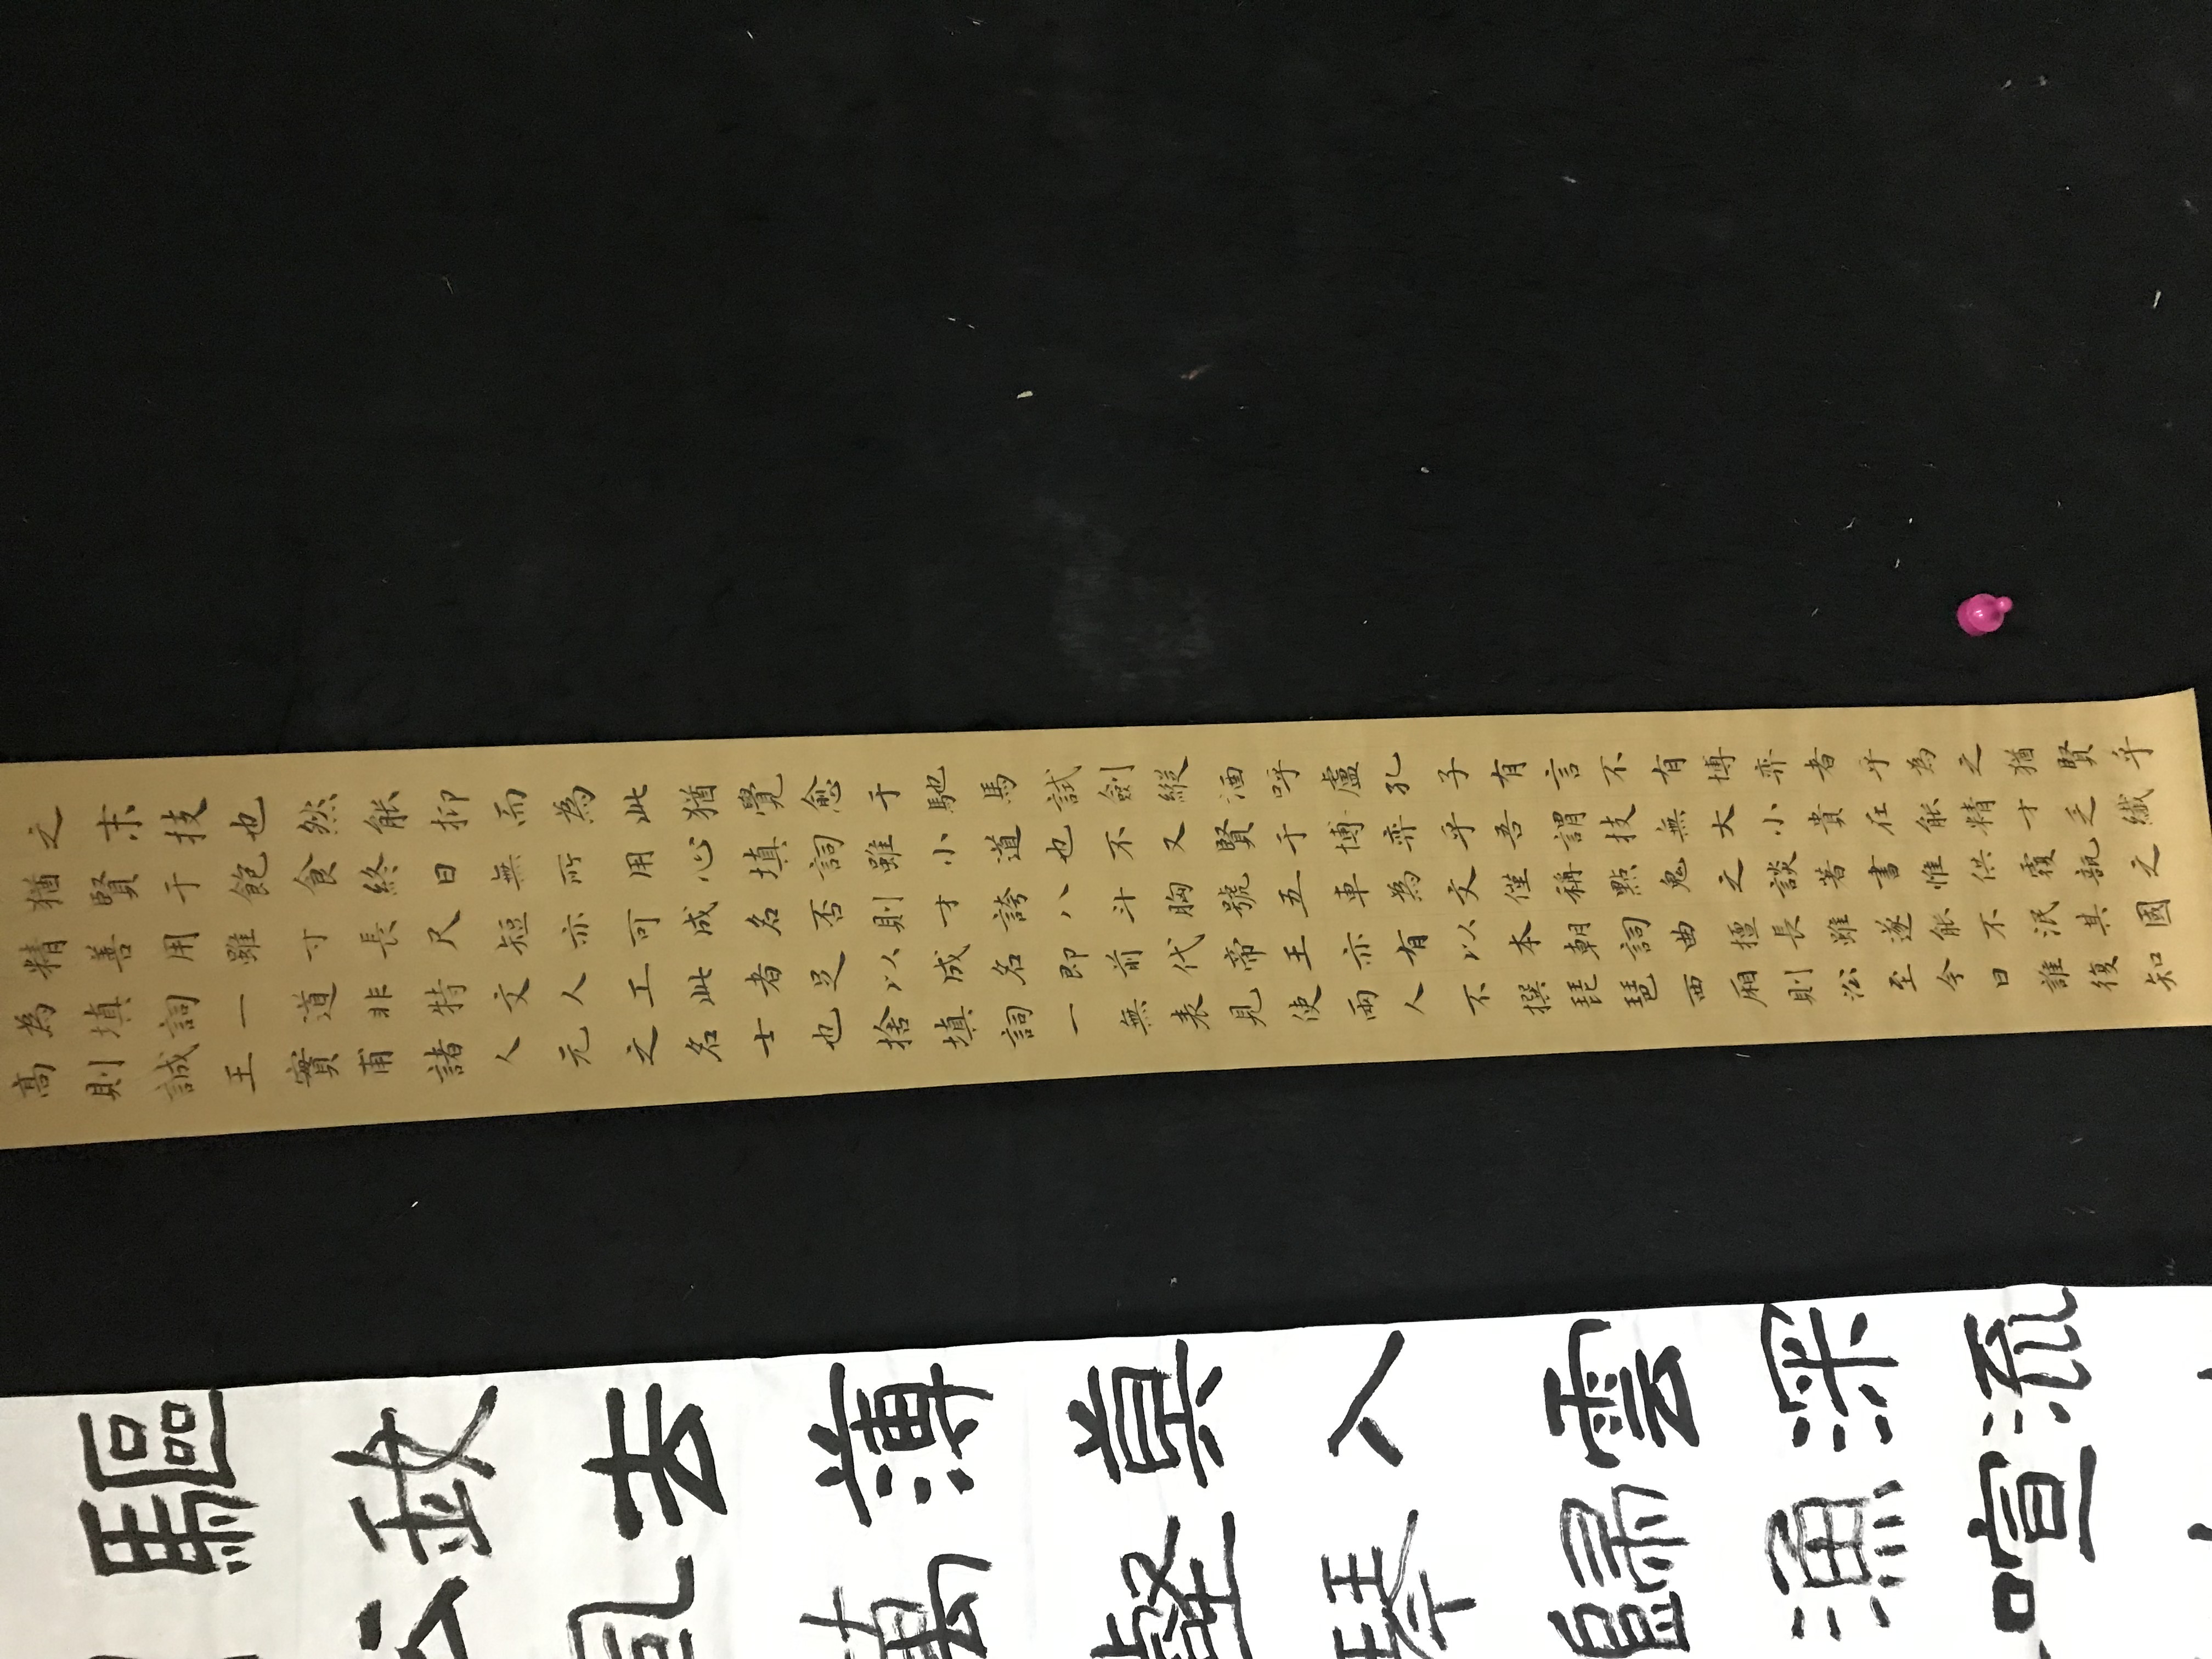 之末技也然能抑而為此猶覺愈于馳馬試劍縱酒呼盧孔子有言不有博弈者乎為之猶賢乎
猶賢于飽食終日無所用心填詞雖小道也不又賢于博弈乎吾謂技無大小貴在能精才乏纖
精善用雖寸長尺短亦可成名否則才誇八斗胸號五車為文僅稱點鬼之談著書惟供覆瓿之
為填詞一道非特文人工此者足以成名即前代帝王亦有以本朝詞曲擅長雖遂能不泯其國
高則誠王實甫諸人元之名士也捨填詞一無表見使兩人不撰琵琶西廂則沿至今日誰復知
驅政去薄入雲深流
壑歸漁喧